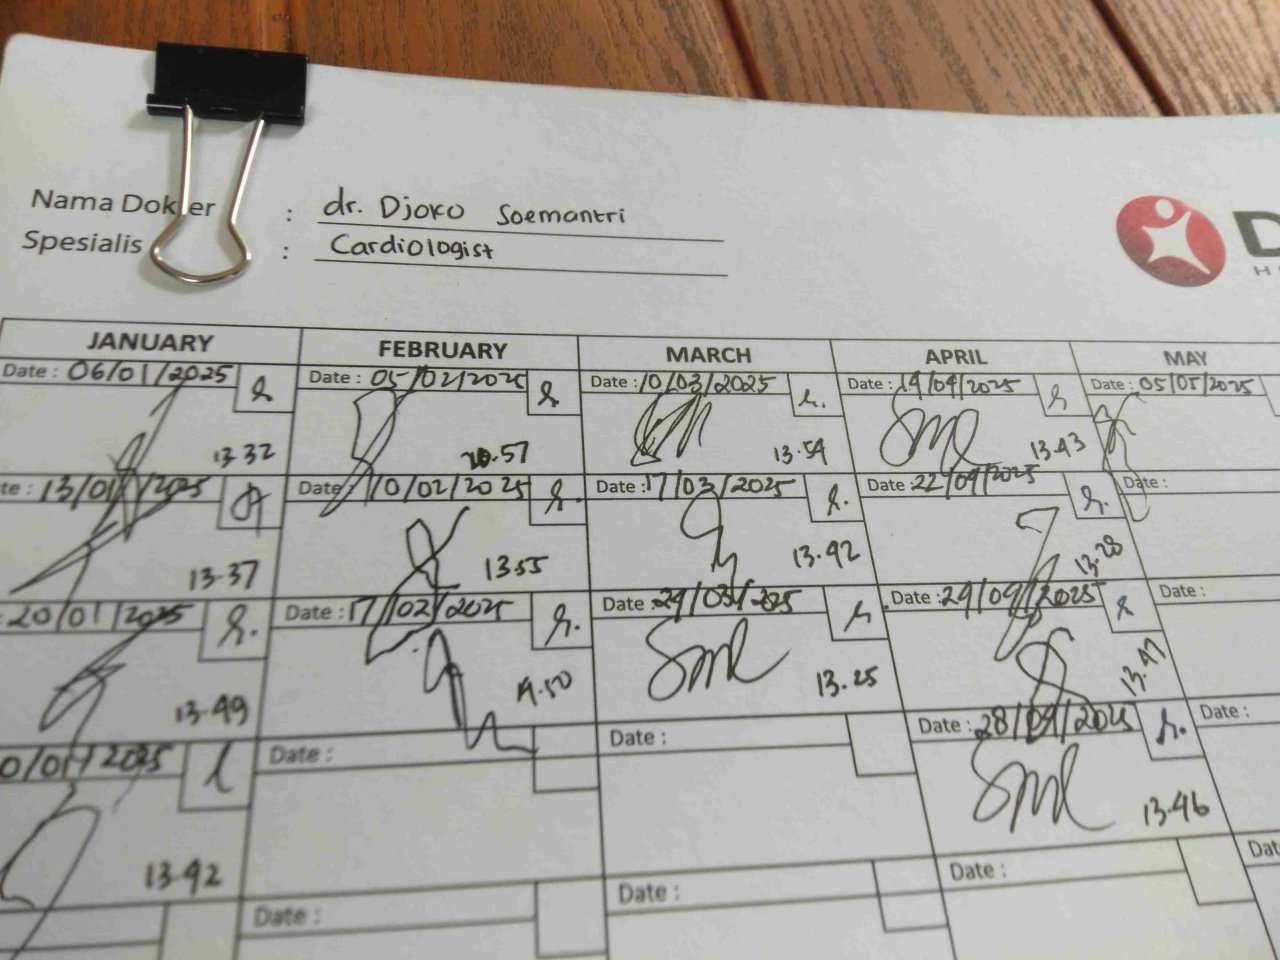 Nama Dokter : dr. Djoko Soemantri
Spesialis : Cardiologist
JANUARY FEBRUARY MARCH APRIL MAY
Date : 06/01/2025 Date : 05/02/2025 Date : 10/03/2025 Date : 14/04/2025 Date : 05/05/2025
13.32 13.54 13.43
13/01/2025 Date 10/02/2025 Date : 17/03/2025 Date : 22/04/2025 Date :
13.37 13.55 13.42 13.28
20/01/2025 Date : 17/02/2025 Date : 24/03/2025 Date : 24/04/2025 Date :
13.49 14.50 13.25 13.47
/01/2025 Date : Date : Date : 28/04/2025 Date :
13.42 13.46
Date : Date : Date :